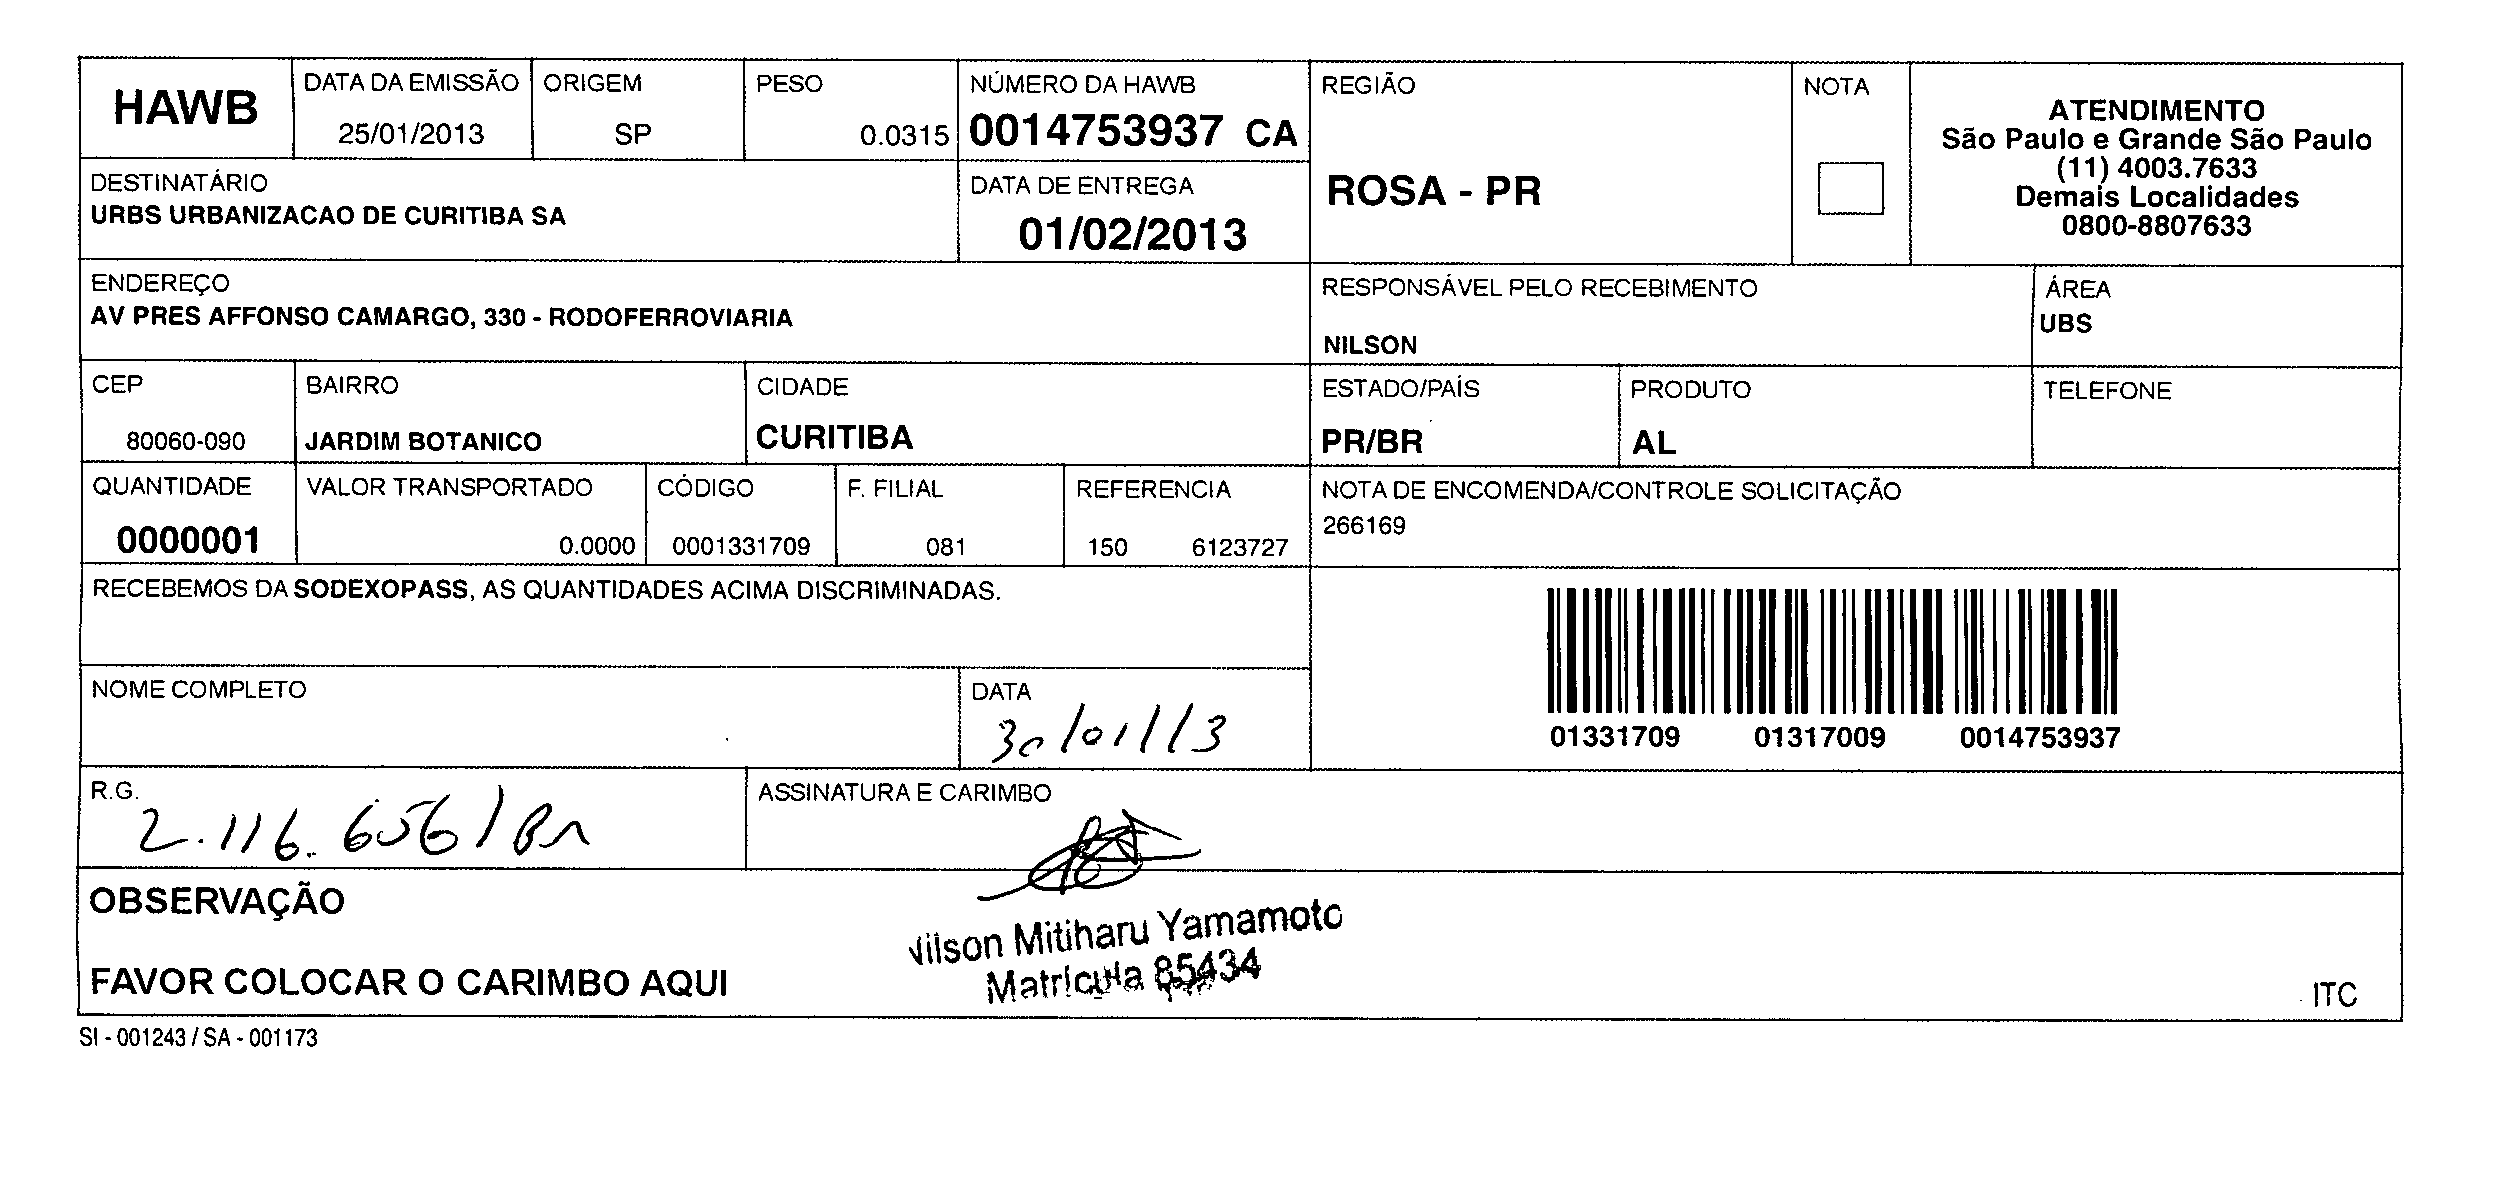 HAWB
DATA DA EMISSÃO
25/01/2013
ORIGEM
SP
PESO
0.0315
NÚMERO DA HAWB
0014753937 CA
REGIÃO
ROSA - PR
NOTA
ATENDIMENTO
São Paulo e Grande São Paulo
(11) 4003.7633
Demais Localidades
0800-8807633
DESTINATÁRIO
URBS URBANIZACAO DE CURITIBA SA
DATA DE ENTREGA
01/02/2013
ENDEREÇO
AV PRES AFFONSO CAMARGO, 330 - RODOFERROVIARIA
RESPONSÁVEL PELO RECEBIMENTO
NILSON
ÁREA
UBS
CEP
80060-090
BAIRRO
JARDIM BOTANICO
CIDADE
CURITIBA
ESTADO/PAÍS
PR/BR
PRODUTO
AL
TELEFONE
QUANTIDADE
0000001
VALOR TRANSPORTADO
0.0000
CÓDIGO
0001331709
F. FILIAL
081
REFERENCIA
150 6123727
NOTA DE ENCOMENDA/CONTROLE SOLICITAÇÃO
266169
RECEBEMOS DA SODEXOPASS, AS QUANTIDADES ACIMA DISCRIMINADAS.
01331709 01317009 0014753937
NOME COMPLETO
DATA
30/01/13
R.G.
2.116.656/
ASSINATURA E CARIMBO
OBSERVAÇÃO
FAVOR COLOCAR O CARIMBO AQUI
Nilson Mitiharu Yamamoto
Matrícula 85434
ITC
SI - 001243 / SA - 001173